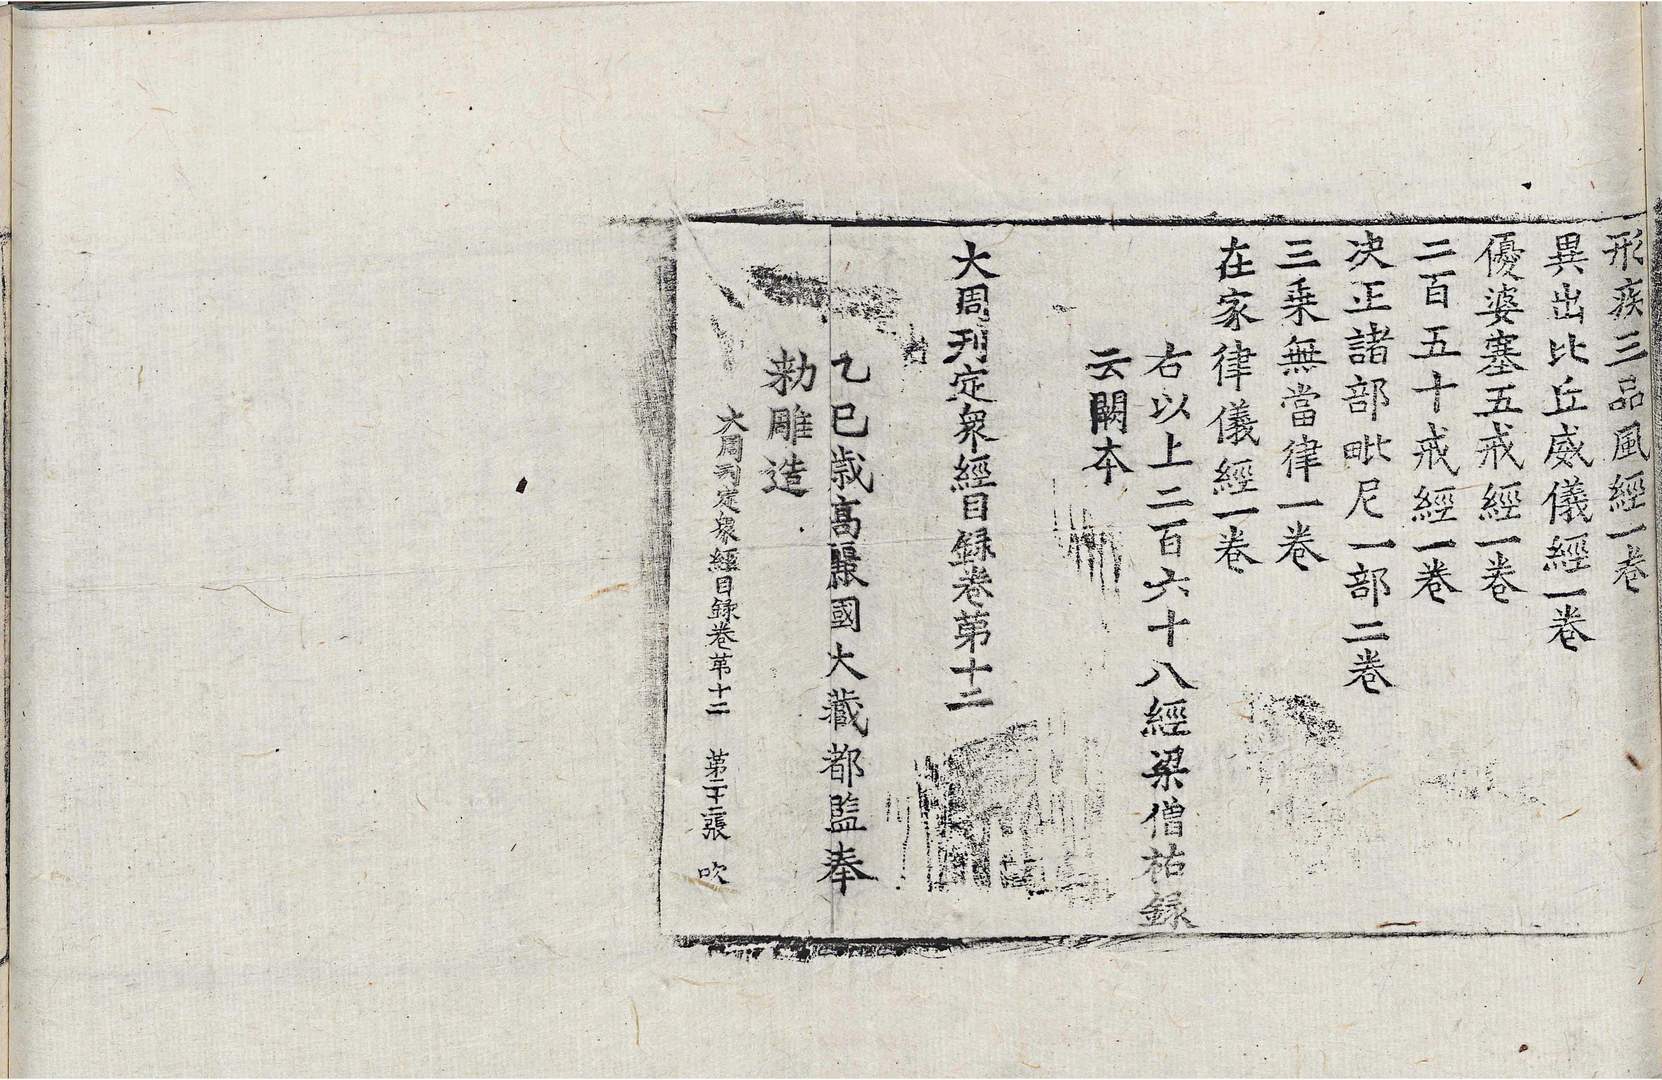 形疾三品風經一卷
異出比丘威儀經一卷
優婆塞五戒經一卷
二百五十戒經一卷
决正諸部毗尼一部二卷
三乗無當律一卷
在家律儀經一卷
右以上二百六十八經梁僧祐録
云闕本
大周刊定衆經目録卷第十二
乙巳歳高麗國大藏都監奉
勅雕造
大周刊定衆經目録卷第十二 第二十二張 吹